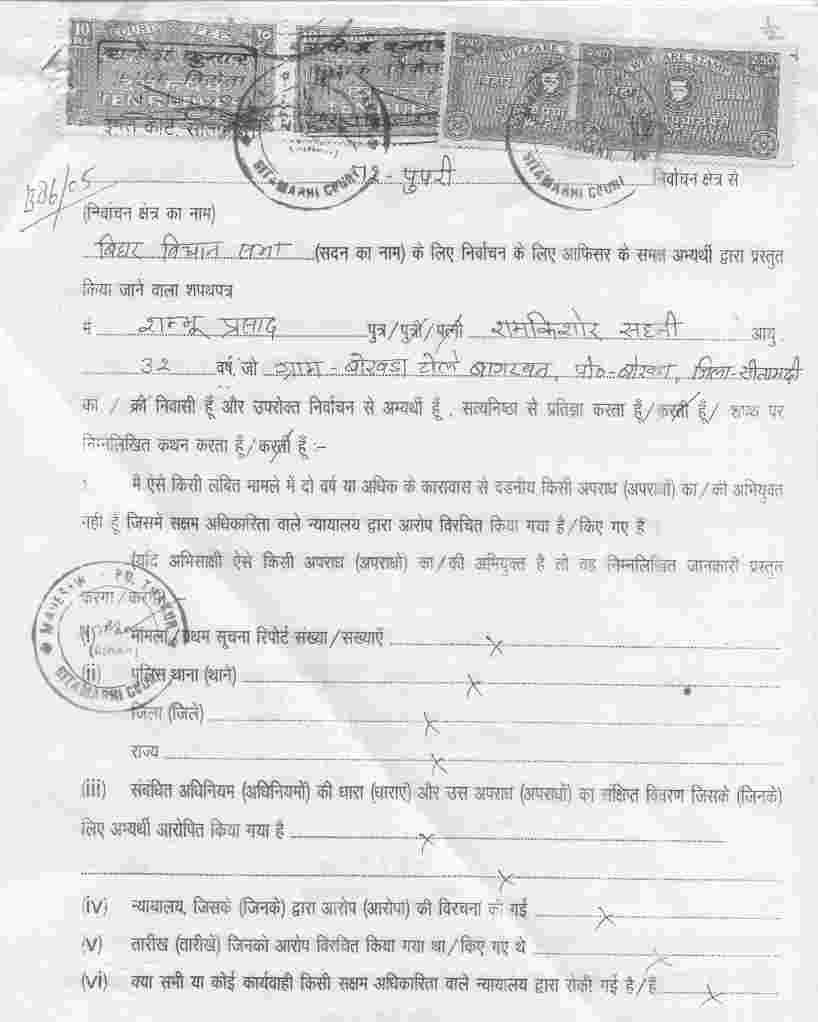 10 COURT FEE 10
TEN RUPEES
2.50 WELFARE STAMP 2.50
बिहार
SITAMARHI COURT
306/05
72 - पुपरी निर्वाचन क्षेत्र से
(निर्वाचन क्षेत्र का नाम)
बिहार विधान सभा (सदन का नाम) के लिए निर्वाचन के लिए आफिसर के समक्ष अभ्यर्थी द्वारा प्रस्तुत
किया जाने वाला शपथपत्र
मैं शम्भू प्रसाद पुत्र/पुत्री/पत्नी रामकिशोर सहनी आयु
32 वर्ष, जो ग्राम - बोखड़ा टोले बागरवन, पो०-बोखड़ा, जिला-सीतामढ़ी
का / की निवासी हूँ और उपरोक्त निर्वाचन से अभ्यर्थी हूँ, सत्यनिष्ठा से प्रतिज्ञा करता हूँ/करती हूँ/ शपथ पर
निम्नलिखित कथन करता हूँ/करती हूँ :-
मैं ऐसे किसी लंबित मामले में दो वर्ष या अधिक के कारावास से दंडनीय किसी अपराध (अपराधों) का/की अभियुक्त
नहीं हूँ जिसमें सक्षम अधिकारिता वाले न्यायालय द्वारा आरोप विरचित किया गया है/किए गए हैं
(यदि अभिसाक्षी ऐसे किसी अपराध (अपराधों) का/की अभियुक्त है तो वह निम्नलिखित जानकारी प्रस्तुत
करेगा/करेगी :-
(i) मामला/प्रथम सूचना रिपोर्ट संख्या/संख्याएँ X
(ii) पुलिस थाना (थाने) X
SITAMARHI COURT
जिला (जिले) X
राज्य X
(iii) संबंधित अधिनियम (अधिनियमों) की धारा (धाराएं) और उस अपराध (अपराधों) का संक्षिप्त विवरण जिसके (जिनके)
लिए अभ्यर्थी आरोपित किया गया है X
X
(iv) न्यायालय, जिसके (जिनके) द्वारा आरोप (आरोपों) की विरचना की गई X
(v) तारीख (तारीखें) जिनको आरोप विरचित किया गया था/किए गए थे X
(vi) क्या सभी या कोई कार्यवाही किसी सक्षम अधिकारिता वाले न्यायालय द्वारा रोकी गई है/हैं X